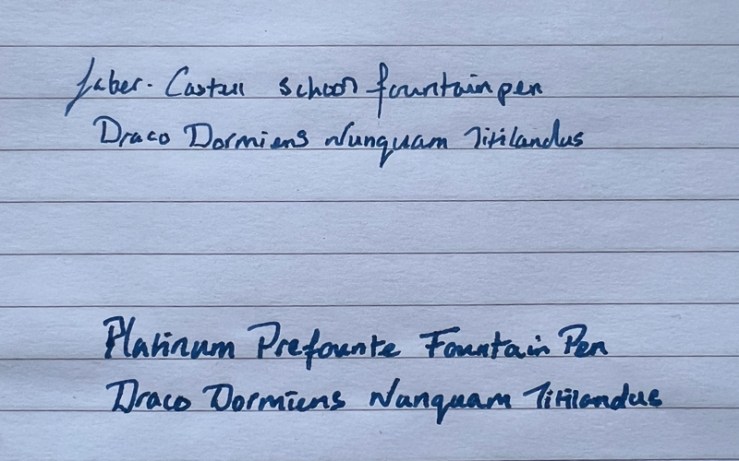 Faber-Castell school fountain pen
Draco Dormiens Nunquam Titilandus
Platinum Prefounte Fountain Pen
Draco Dormiens Nunquam Titilandus